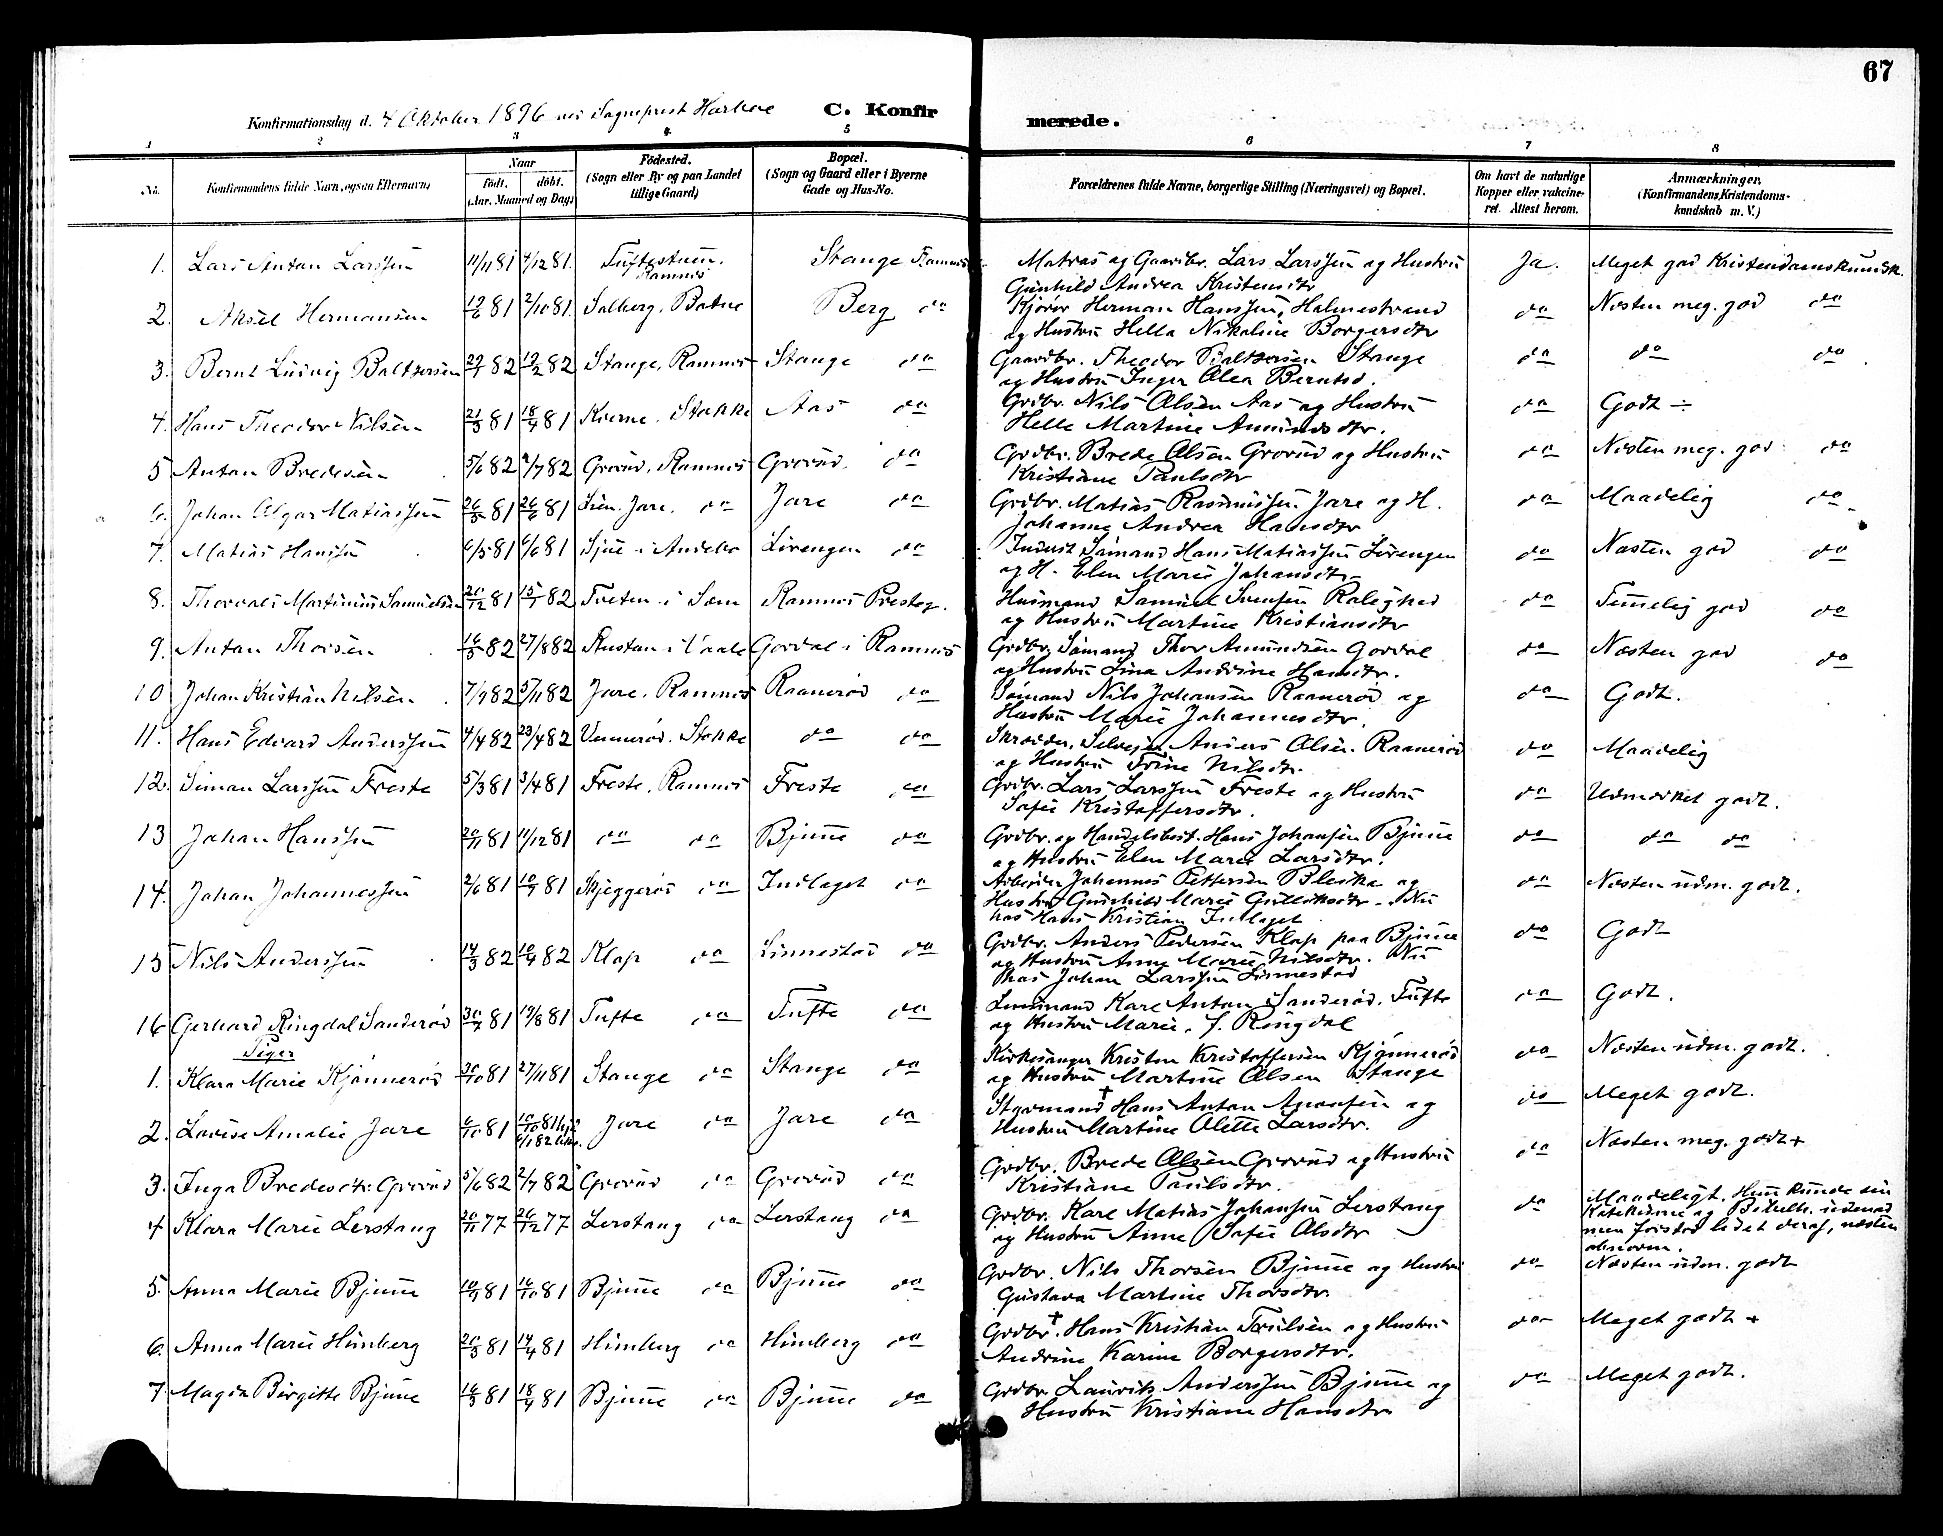 67
Konfirmationsdag d. 4 Oktober 1896 ved Sogneprest Harboe C. Konfirmerede.
1 2 3 4 5 6 7 8
No. Konfirmandens fulde Navn, ogsaa Efternavn. Naar født. døbt. (Aar, Maaned og Dag) Fødested. (Sogn eller By og paa Landet tillige Gaard) Bopæl. (Sogn og Gaard eller i Byerne Gade og Hus-No. Forældrenes fulde Navne, borgerlige Stilling (Næringsvei) og Bopæl. Om havt de naturlige Kopper eller vakcineret. Attest herom. Anmærkninger. (Konfirmandens Kristendomskundskab m. V.)
1. Lars Anton Larssen 11/11 81 4/12 81. Tuftestuen. Ramnes Stange Ramnes Matros og Gaardbr. Lars Larssen og Hustru Ja. Meget god Kristendomskundsk.
Gunhild Andrea Kristensdtr
2. Aksel Hermansen 12/6 81 2/10 81. Solberg, Botne Berg do Kjører Herman Hanssen, Holmestrand do Næsten meg. god do
og Hustru Hella Nikoline Borgersdtr
3. Bernt Ludvig Baltsersen 27/1 82 12/2 82 Stange, Ramnes Stange do Gaardbr. Theodor Baltsersen Stange do do do
og Hustru Inger Olea Berntsd.
4. Hans Theodor Nilsen 21/3 81 18/4 81 Kverne, Stokke Aas do Grdbr. Nils Olsen Aas og Hustru do Godt ÷
Helle Martine Amundsdtr.
5 Anton Bredesen 5/6 82 2/7 82 Grorud, Ramnes Grorud. do Grdbr. Brede Olsen Grorud og Hustru do Næsten meg. god do
Kristiane Paulsdtr
6. Johan Olgar Matiassen 26/5 81 26/6 81 Sien. Jare, do Jare do Grdbr. Matias Rasmussen Jare og H. do Maadelig do
Johanne Andrea Hansdtr
7. Matias Hanssen 6/5 81 6/6 81 Sjue i Andebo Lørengen do Inderst Sømand Hans Matiassen Lørengen do Næsten god do
og H. Elen Marie Johansdtr
8. Thorvald Martinius Samuelsen 20/12 81 15/1 82 Tveten i Sem Ramnes Presteg. Husmand Samuel Svensen Rolighed do Temmelig god do
og Hustru Martine Kristiansdtr
9. Anton Thorsen 16/5 82 27/8 82 Rustan i Vaale Gordal i Ramnes Grdbr. Sømand Thor Amundsen Gordal do Næsten god do
og Hustru Lina Andrine Hansdtr.
10 Johan Kristian Nilsen 7/9 82 5/11 82 Jare, Ramnes Raanerød do Sømand Nils Johansen Raanerød og do Godt.
Hustru Marie Johannesdtr.
11. Hans Edvard Anderssen 4/4 82 23/4 82 Vennerød. Stokke do do Skrædder, Selveier Anders Olsen Raanerød do Maadelig
og Hustru Trine Nilsdtr.
12. Simon Larssen Freste 5/3 81 3/4 81 Freste, Ramnes Freste do Grdbr. Lars Larssen Freste og Hustru do Udmærket godt.
Sofie Kristoffersdtr.
13 Johan Hanssen 20/11 81 11/12 81 do do Bjune do Grdbr. og Handelsbest. Hans Johansen Bjune do do do
og Hustru Elen Marie Larsdtr.
14. Johan Johannessen 2/6 81 10/7 81 Skjeggerød do Indlaget do Arbeider Johannes Pettersen Bleika og do Næsten udm. godt.
Hustru Gunhild Marie Gulliksdtr. Nu
hos Hans Kristian Indlaget
15 Nils Anderssen 14/3 82 10/4 82 Klop do Linnestad do Grdbr. Anders Pedersen Klop paa Bjune do Godt
og Hustru Anne Marie Nilsdtr. Nu
hos Johan Larssen Linnestad
16 Gerhard Ringdal Sanderød 30/7 81 19/8 81 Tufte do Tufte do Lensmand Karl Anton Sanderød. Tufte do Godt.
og Hustru Marie, f. Ringdal
Piger
1. Klara Marie Kjønnerød 30/10 81 27/11 81 Stange do Stange do Kirkesanger Kristen Kristoffersen Kjønnerød do Næsten udm. godt.
og Hustru Martine Olsen Stange
2. Lovise Amalie Jare 6/10 81 10/10 81 hj. 6/1 82 Jare do Jare do Styrmand † Hans Anton og do Meget godt.
Hustru Martine Olette Larsdtr.
3. Inga Bredesdtr. Grorud 5/6 82 2/7 82 Grorud do Grorud do Grdbr. Brede Olsen Grorud og Hustru do Næsten meg. godt +
Kristiane Paulsdtr.
4 Klara Marie Lerstang 20/11 77 26/12 77 Lerstang do Lerstang do Grdbr. Karl Matias Johansen Lerstang do Maadeligt. Hun kunde sin
og Hustru Anne Sofie Olsdtr Katekisme og Bibelh. udenad
men forstod lidet deraf, næsten
abnorm.
5. Anna Marie Bjune 10/9 81 16/10 81 Bjune do Bjune do Grdbr. Nils Thorsen Bjune og Hustru do Næsten udm. godt
Gustava Martine Thorsdtr.
6. Anna Marie Himberg 20/3 81 14/4 81 Himberg do Himberg do Grdbr. † Hans Kristian og Hustru do Meget godt +
Andrine Karine Borgersdtr.
7. Magda Birgitte Bjune 16/3 81 18/4 81 Bjune do Bjune do Grdbr. Laurits Anderssen Bjune og do Meget godt.
Hustru Kristiane Hansdtr